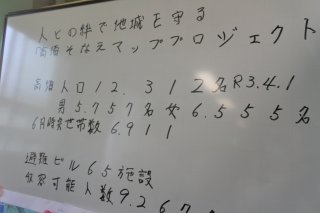 人との絆で地域を守る
高須そなえマッププロジェクト
高須人口12.312名R3.4.1
男5.757名女6.555名
6月時点世帯数6.911
避難ビル65施設
収容可能人数9.267